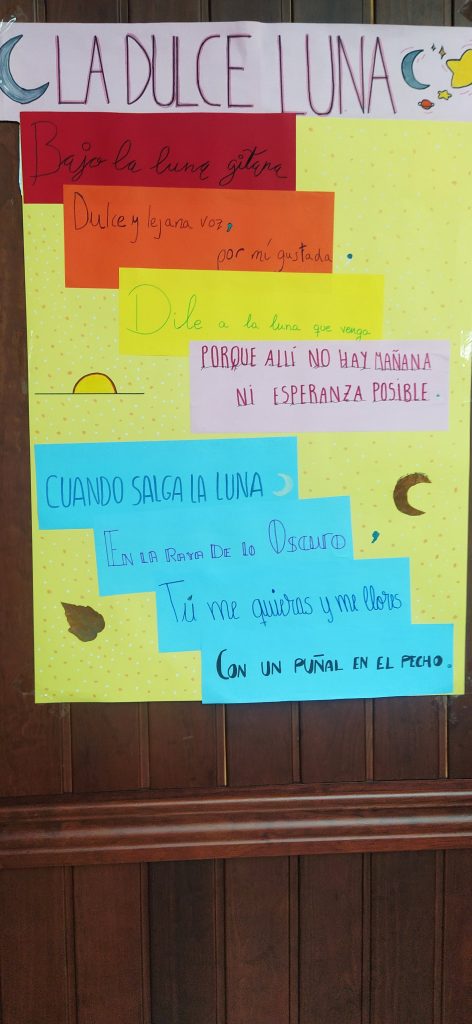 LA DULCE LUNA
Bajo la luna gitana
Dulce y lejana voz,
por mí gustada.
Dile a la luna que venga
PORQUE ALLÍ NO HAY MAÑANA
NI ESPERANZA POSIBLE.
CUANDO SALGA LA LUNA
EN LA RAYA DE LO OSCURO,
Tú me quieras y me llores
CON UN PUÑAL EN EL PECHO.